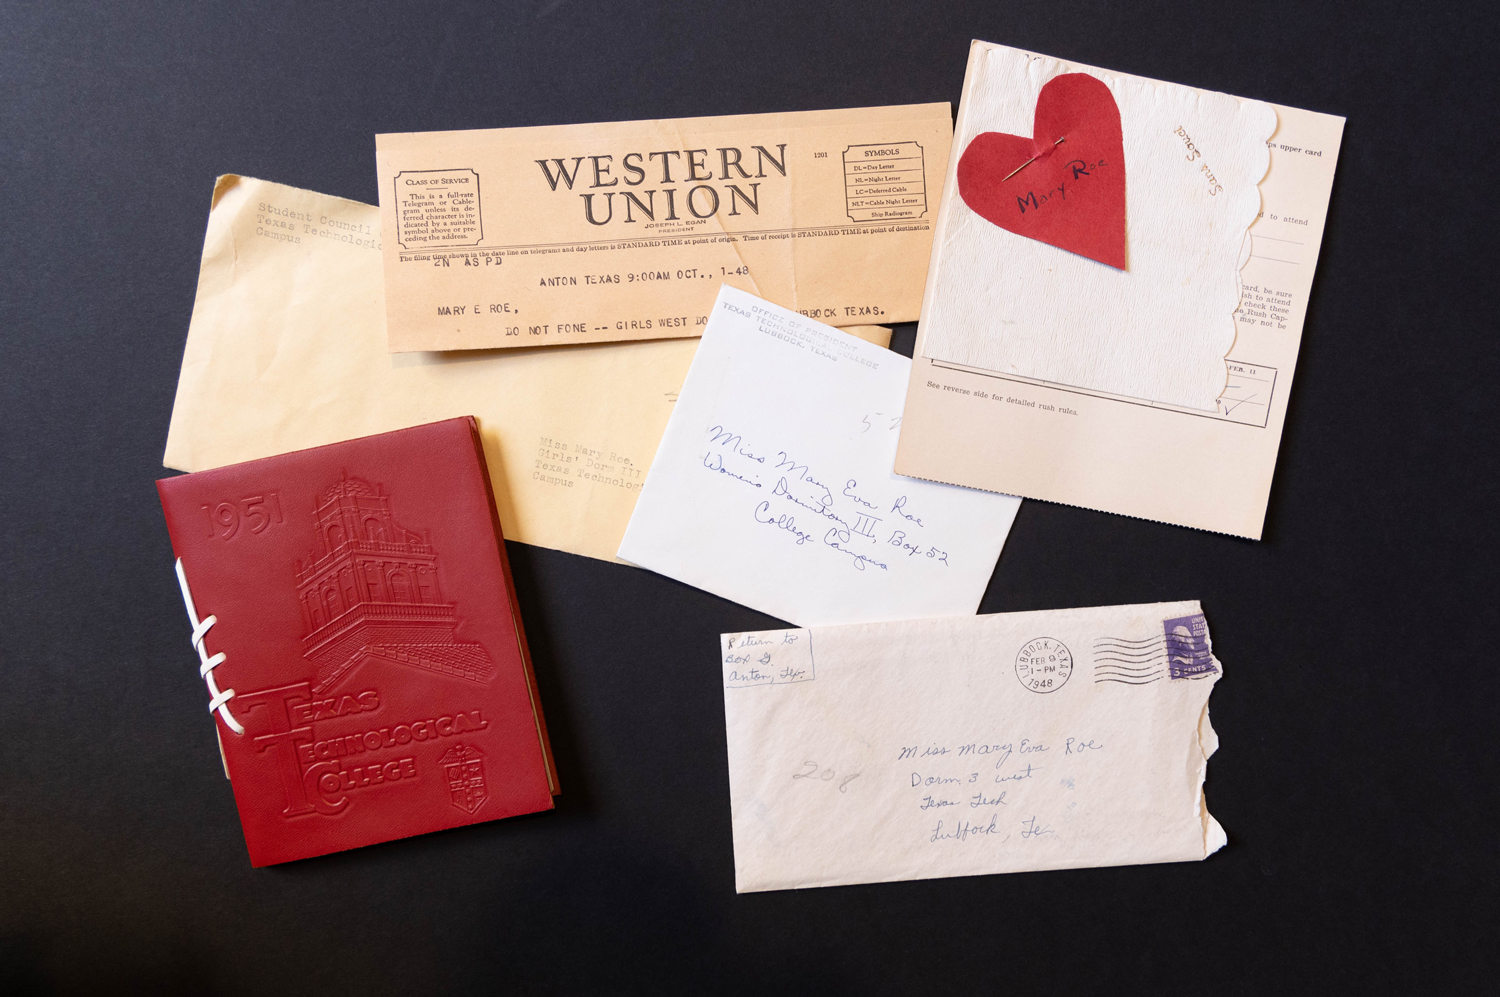 Student Council
Texas Technologic
Campus
CLASS OF SERVICE
This is a full-rate
Telegram or Cable-
gram unless its de-
ferred character is in-
dicated by a suitable
symbol above or pre-
ceding the address.
WESTERN
UNION
JOSEPH L. EGAN
PRESIDENT
1201
SYMBOLS
DL=Day Letter
NL=Night Letter
LC=Deferred Cable
NLT=Cable Night Letter
Ship Radiogram
The filing time shown in the date line on telegrams and day letters is STANDARD TIME at point of origin. Time of receipt is STANDARD TIME at point of destination
2N ASPD
ANTON TEXAS 9:00AM OCT., 1-48
MARY E ROE,
DO NOT FONE -- GIRLS WEST DO
BBOCK TEXAS.
Miss Mary Roe.
Girls' Dorm III
Texas Technolog
Campus
OFFICE OF PRESIDENT
TEXAS TECHNOLOGICAL COLLEGE
LUBBOCK, TEXAS
52
Miss Mary Eva Roe
Women's Dormitory III, Box 52
College Campus
Mary Roe
ps upper card
d to attend
card, be sure
ish to attend
check these
e Rush Cap-
may not be
FEB. 11
See reverse side for detailed rush rules.
1951
TEXAS
TECHNOLOGICAL
COLLEGE
Return to
Box G.
Anton, Tex.
LUBBOCK, TEXAS
FEB 9
1-PM
1948
UNIT
STAT
POSTA
3 CENTS
208
Miss Mary Eva Roe
Dorm 3 West
Texas Tech
Lubbock, Te